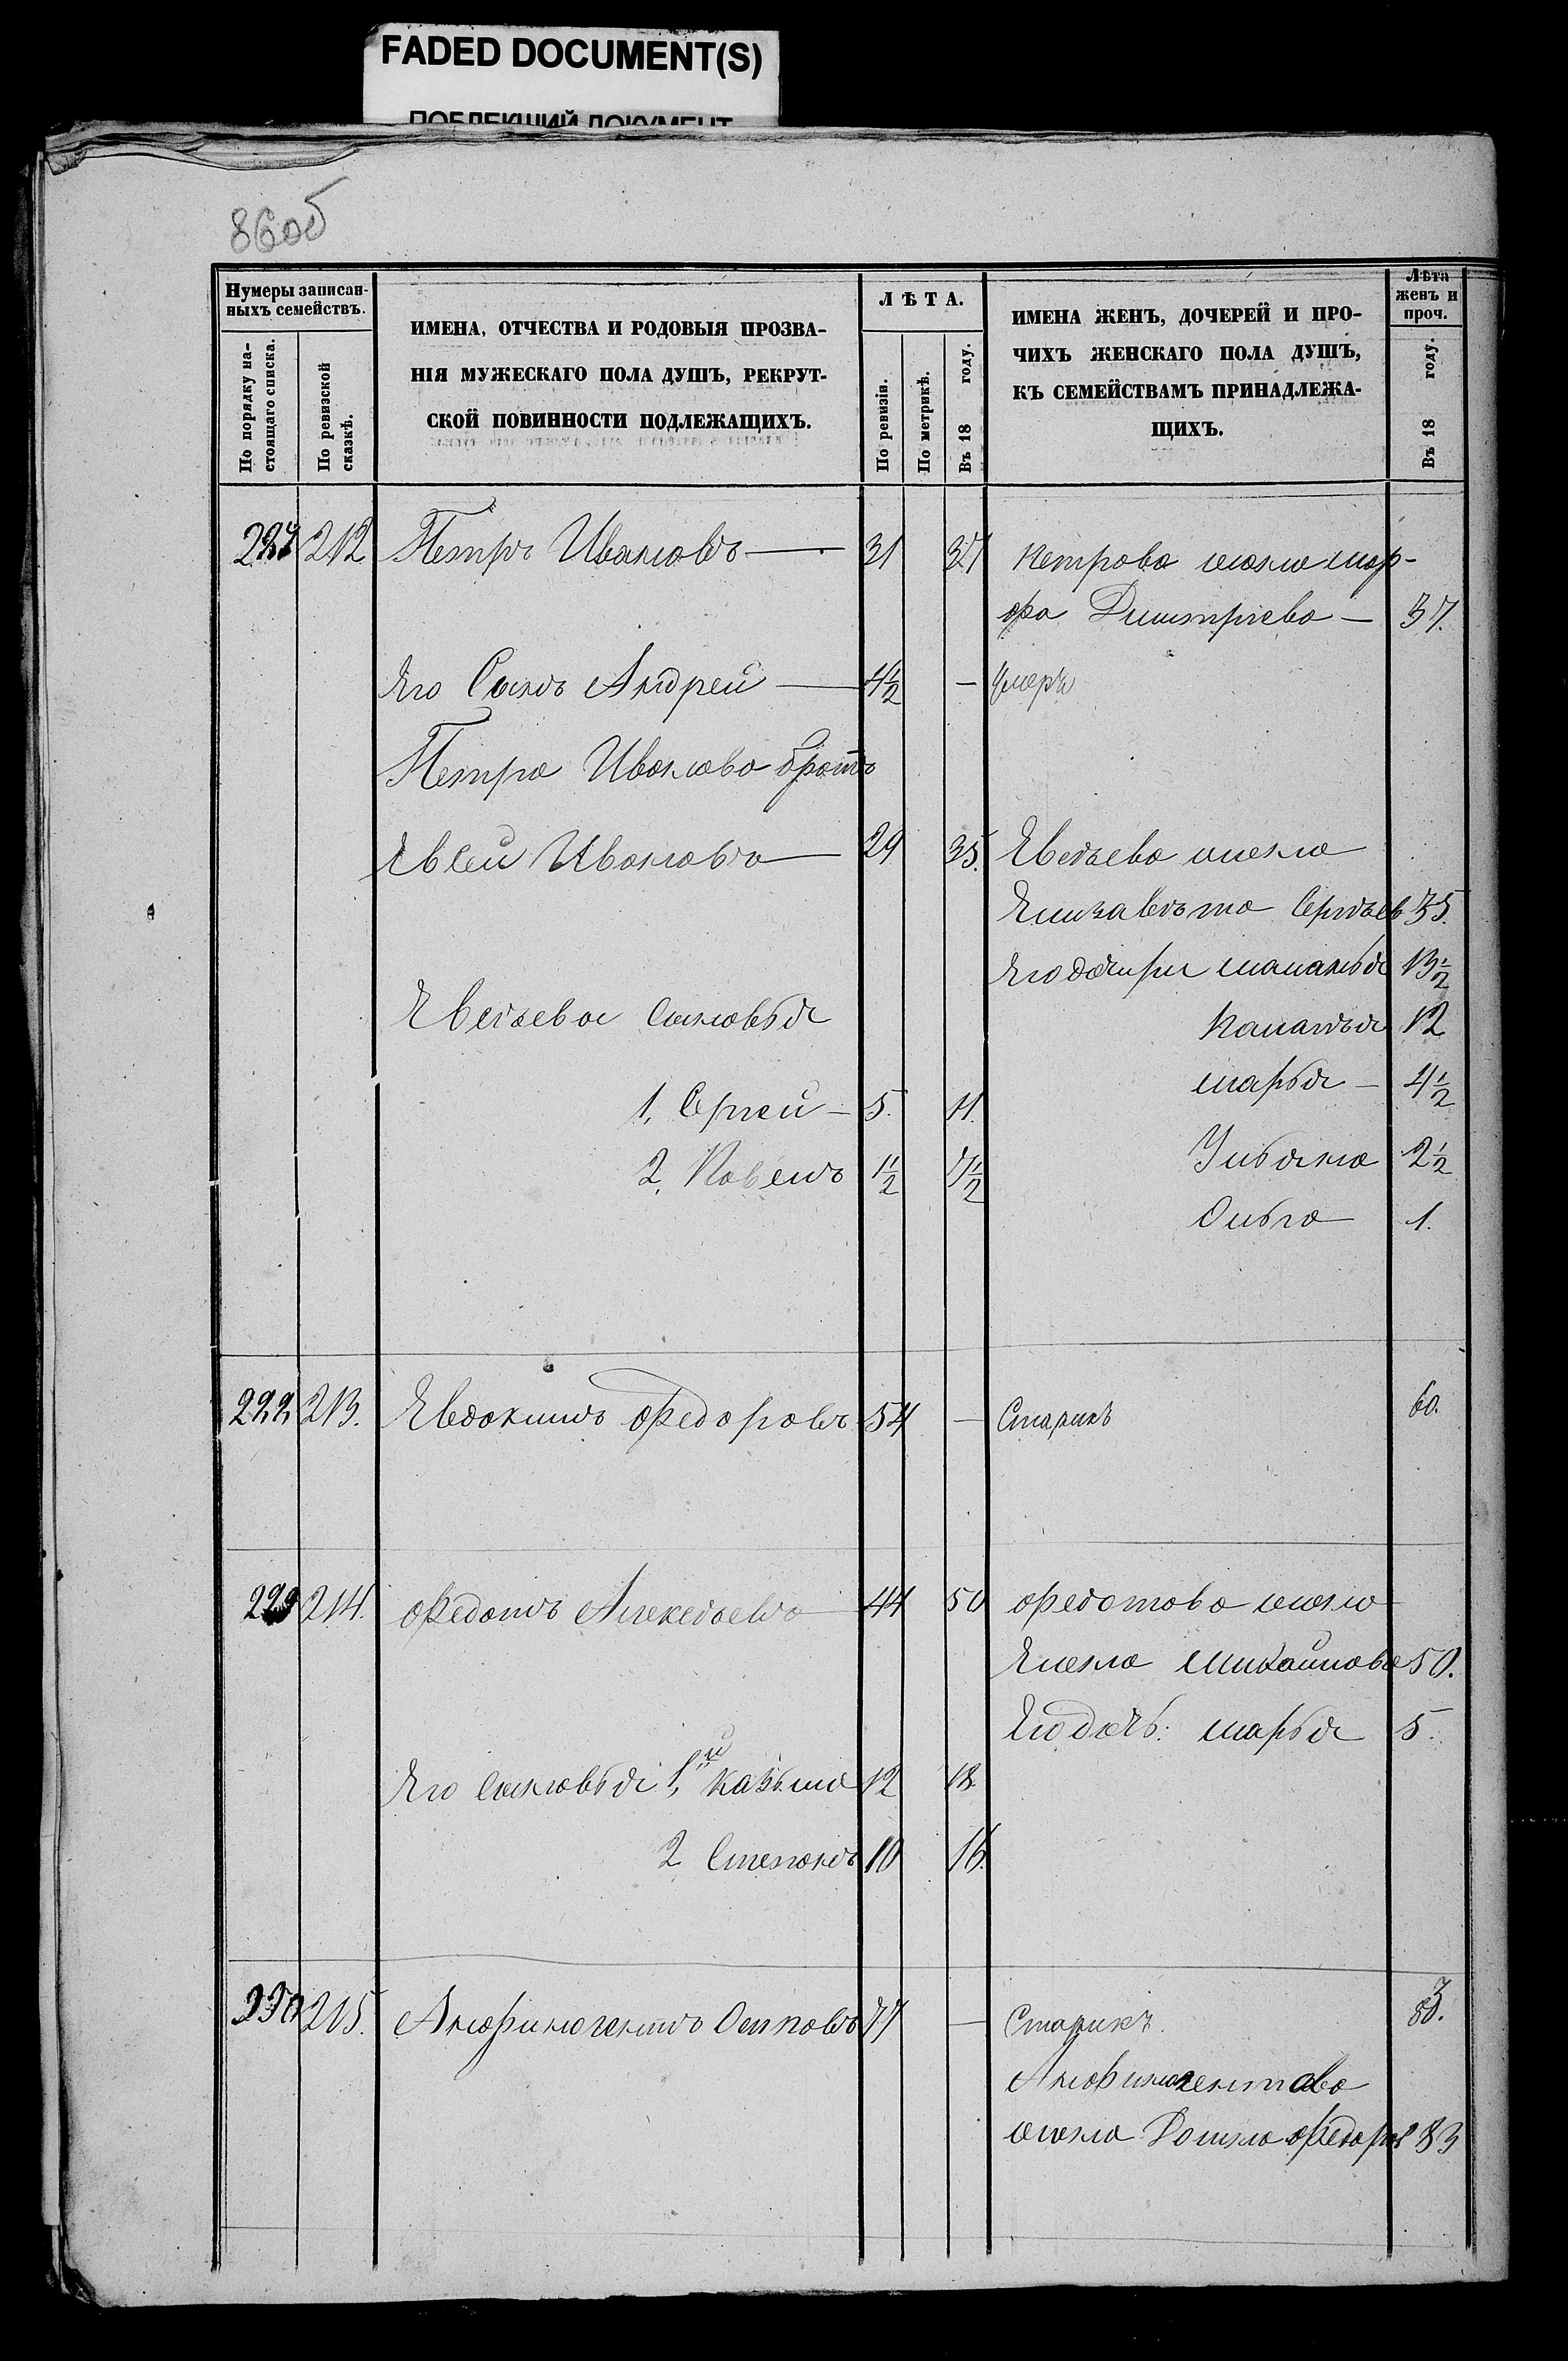 FADED DOCUMENT(S)
ПОБЛЕКШИЙ ДОКУМЕНТ
86об
Нумеры записан-
ныхъ семействъ.
По порядку на-
стоящаго списка.
По ревизской
сказкѣ.
ИМЕНА, ОТЧЕСТВА И РОДОВЫЯ ПРОЗВА-
НІЯ МУЖЕСКАГО ПОЛА ДУШЪ, РЕКРУТ-
СКОЙ ПОВИННОСТИ ПОДЛЕЖАЩИХЪ.
ЛѢТА.
По ревизіи.
По метрикѣ.
Въ 18 году.
ИМЕНА ЖЕНЪ, ДОЧЕРЕЙ И ПРО-
ЧИХЪ ЖЕНСКАГО ПОЛА ДУШЪ,
КЪ СЕМЕЙСТВАМЪ ПРИНАДЛЕЖА-
ЩИХЪ.
Лѣта
женъ и
проч.
Въ 18 году.
212 Петръ Ивановъ — 31 37 Петрова жена мар-
фа Дмитріева — 37.
Его Сынъ Андрей — 4½ — Умеръ
Петра Иванова братъ
Евсей Ивановъ — 29 35. Евсѣева жена
Елизавѣта Сергѣев 35.
Его дочери маланья 13½
Евсѣева сыновья
Паланья 12
марья — 4½
1, Сергей — 5. 11.
Ульяна 2½
2, Павелъ 1½ 7½
Ольга 1.
222 213. Евдокимъ Федоровъ 54 — Старикъ 60.
229 214. Федотъ Алексѣевъ 44 50 Федотова жена
Елена Михайлова 50.
Его доч: марья 5.
Его сыновья 1,й Казьма 12 18.
2 Степанъ 10 16.
230 215. Анфиногентъ Осиповъ 77 — Старикъ. 83.
Анфиногентова
жена Домна Федоров 83